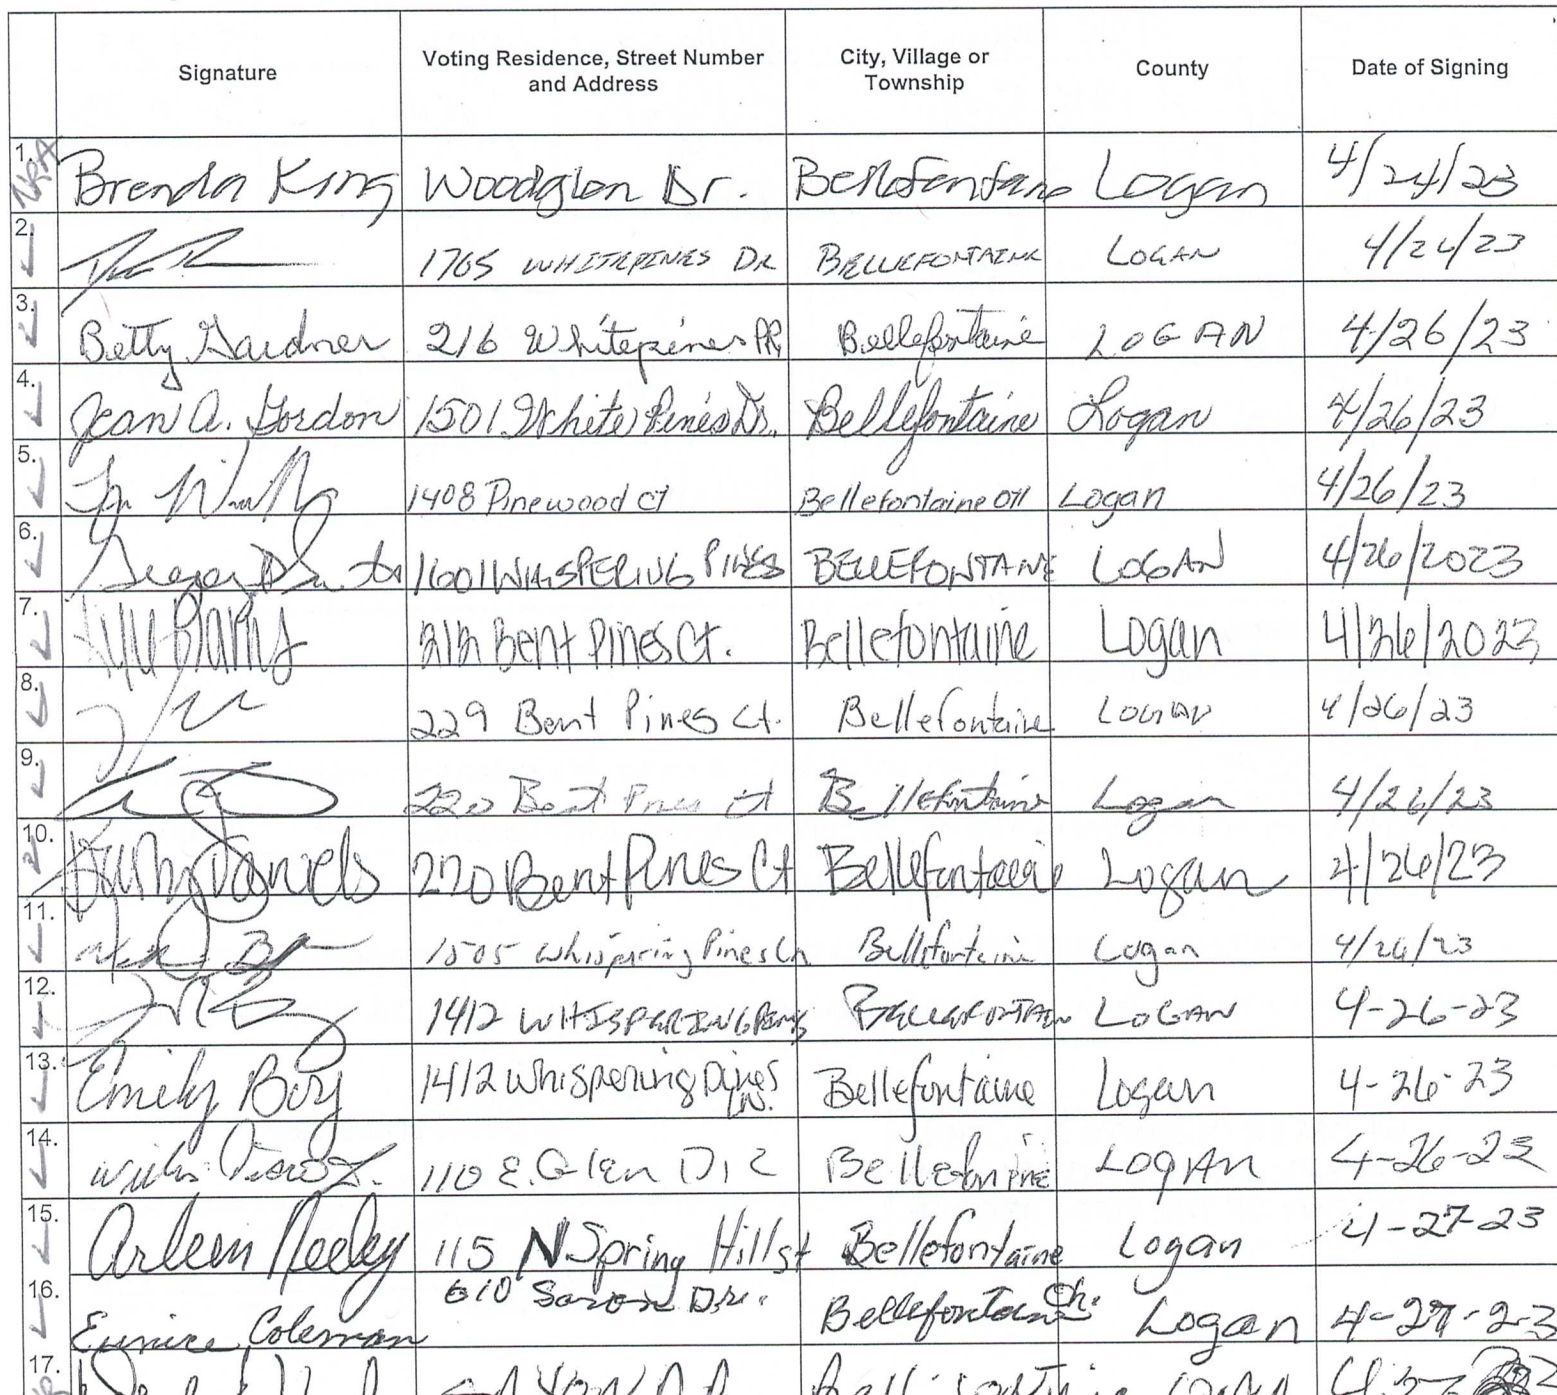 Signature Voting Residence, Street Number and Address City, Village or Township County Date of Signing
1. Brenda King Woodglen Dr. Bellefontane Logan 4/24/23
2. 1765 WHITEPINES DR BELLEFONTAINE LOGAN 4/24/23
3. Betty Gardner 216 Whitepines DR, Bellefontaine LOGAN 4/26/23
4. Jean A. Gordon 1501 White Pines Dr. Bellefontaine Logan 4/26/23
5. 1408 Pinewood Ct Bellefontaine OH Logan 4/26/23
6. 1601 WHISPERING PINES BELLEFONTAINE LOGAN 4/26/2023
7. 212 Bent Pines Ct. Bellefontaine Logan 4/26/2023
8. 229 Bent Pines Ct. Bellefontaine LOGAN 4/26/23
9. 220 Bent Pines Ct Bellefontaine Logan 4/26/23
10. Daniels 220 Bent Pines Ct Bellefontaine Logan 4/26/23
11. 1505 Whispering Pines Ln Bellefontaine Logan 4/26/23
12. 1412 WHISPERING PINES BELLEFONTAIN LOGAN 4-26-23
13. Emily Boy 1412 Whispering Pines Ln. Bellefontaine Logan 4-26-23
14. 110 E. Glen Logan 4-26-23
15. Arleen Neeley 115 N Spring Hill st Bellefontaine Logan 4-27-23
16. Eunice Coleman 610 Bellefontaine Oh. Logan 4-27-23
17.